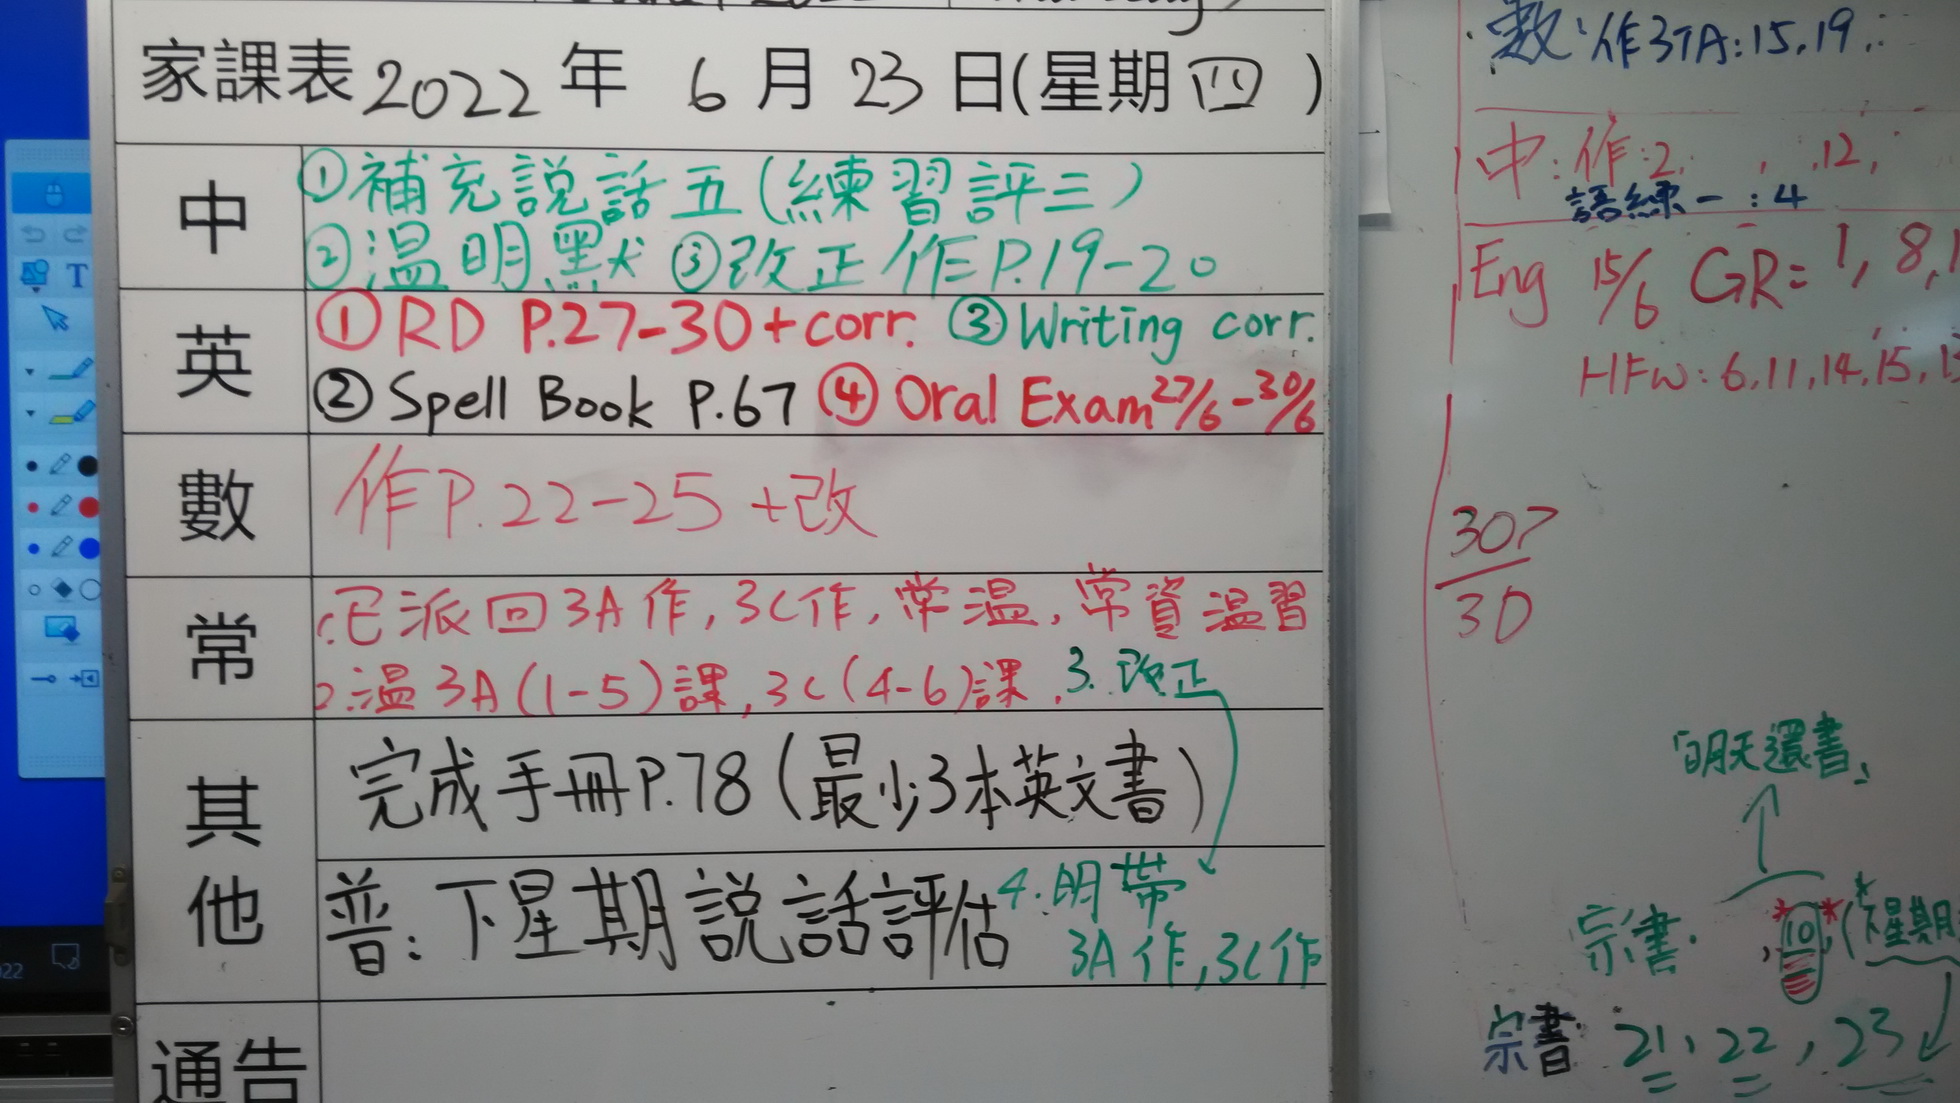 家課表 2022 年 6 月 23 日(星期 四 )
中
①補充說話五(練習評三)
②温明默 ③改正 作P.19-20
英
①RD P.27-30+corr. ③Writing corr.
②Spell Book P.67 ④Oral Exam 27/6-30/6
數
作P.22-25 +改
常
1.已派回3A作, 3C作, 常温, 常資温習
2.温3A(1-5)課, 3C(4-6)課. 3. 改正
其他
完成手冊P.78(最少3本英文書)
普:下星期説話評估
4.明帶
3A作,3C作
通告
數:作3TA:15,19,
中:作:2, , ,12,
語練一:4
Eng 15/6 GR= 1, 8,
HFW: 6,11,14,15,
307
30
「明天還書」
宗書. , *10*, (*下星期
宗書: 21, 22, 23
T